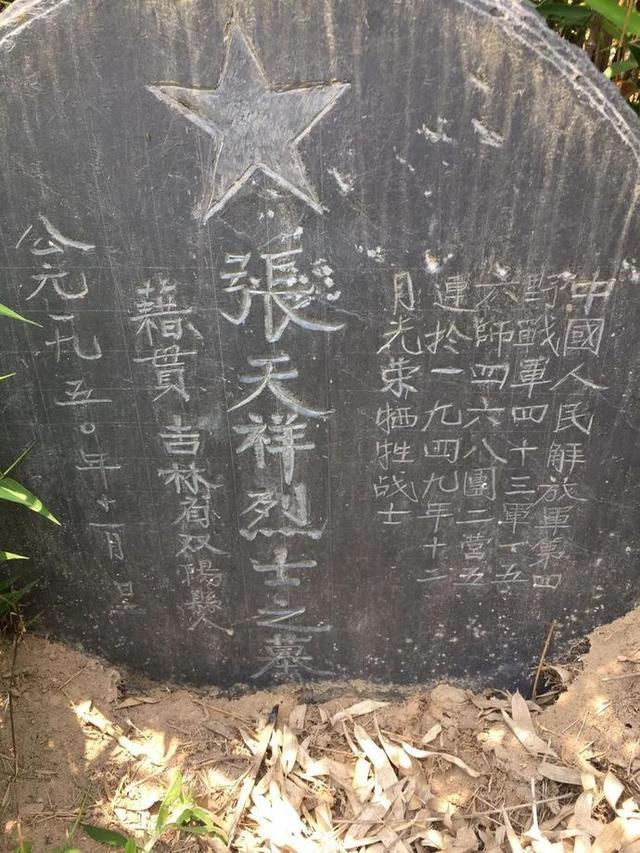 中國人民解放軍第四
野戰軍四十三軍一五
六師四六八團二營五
連於一九四九年十二
月光荣牺牲战士
張天祥烈士之墓
藉貫 吉林省双陽縣
公元一九五〇年十一月旦